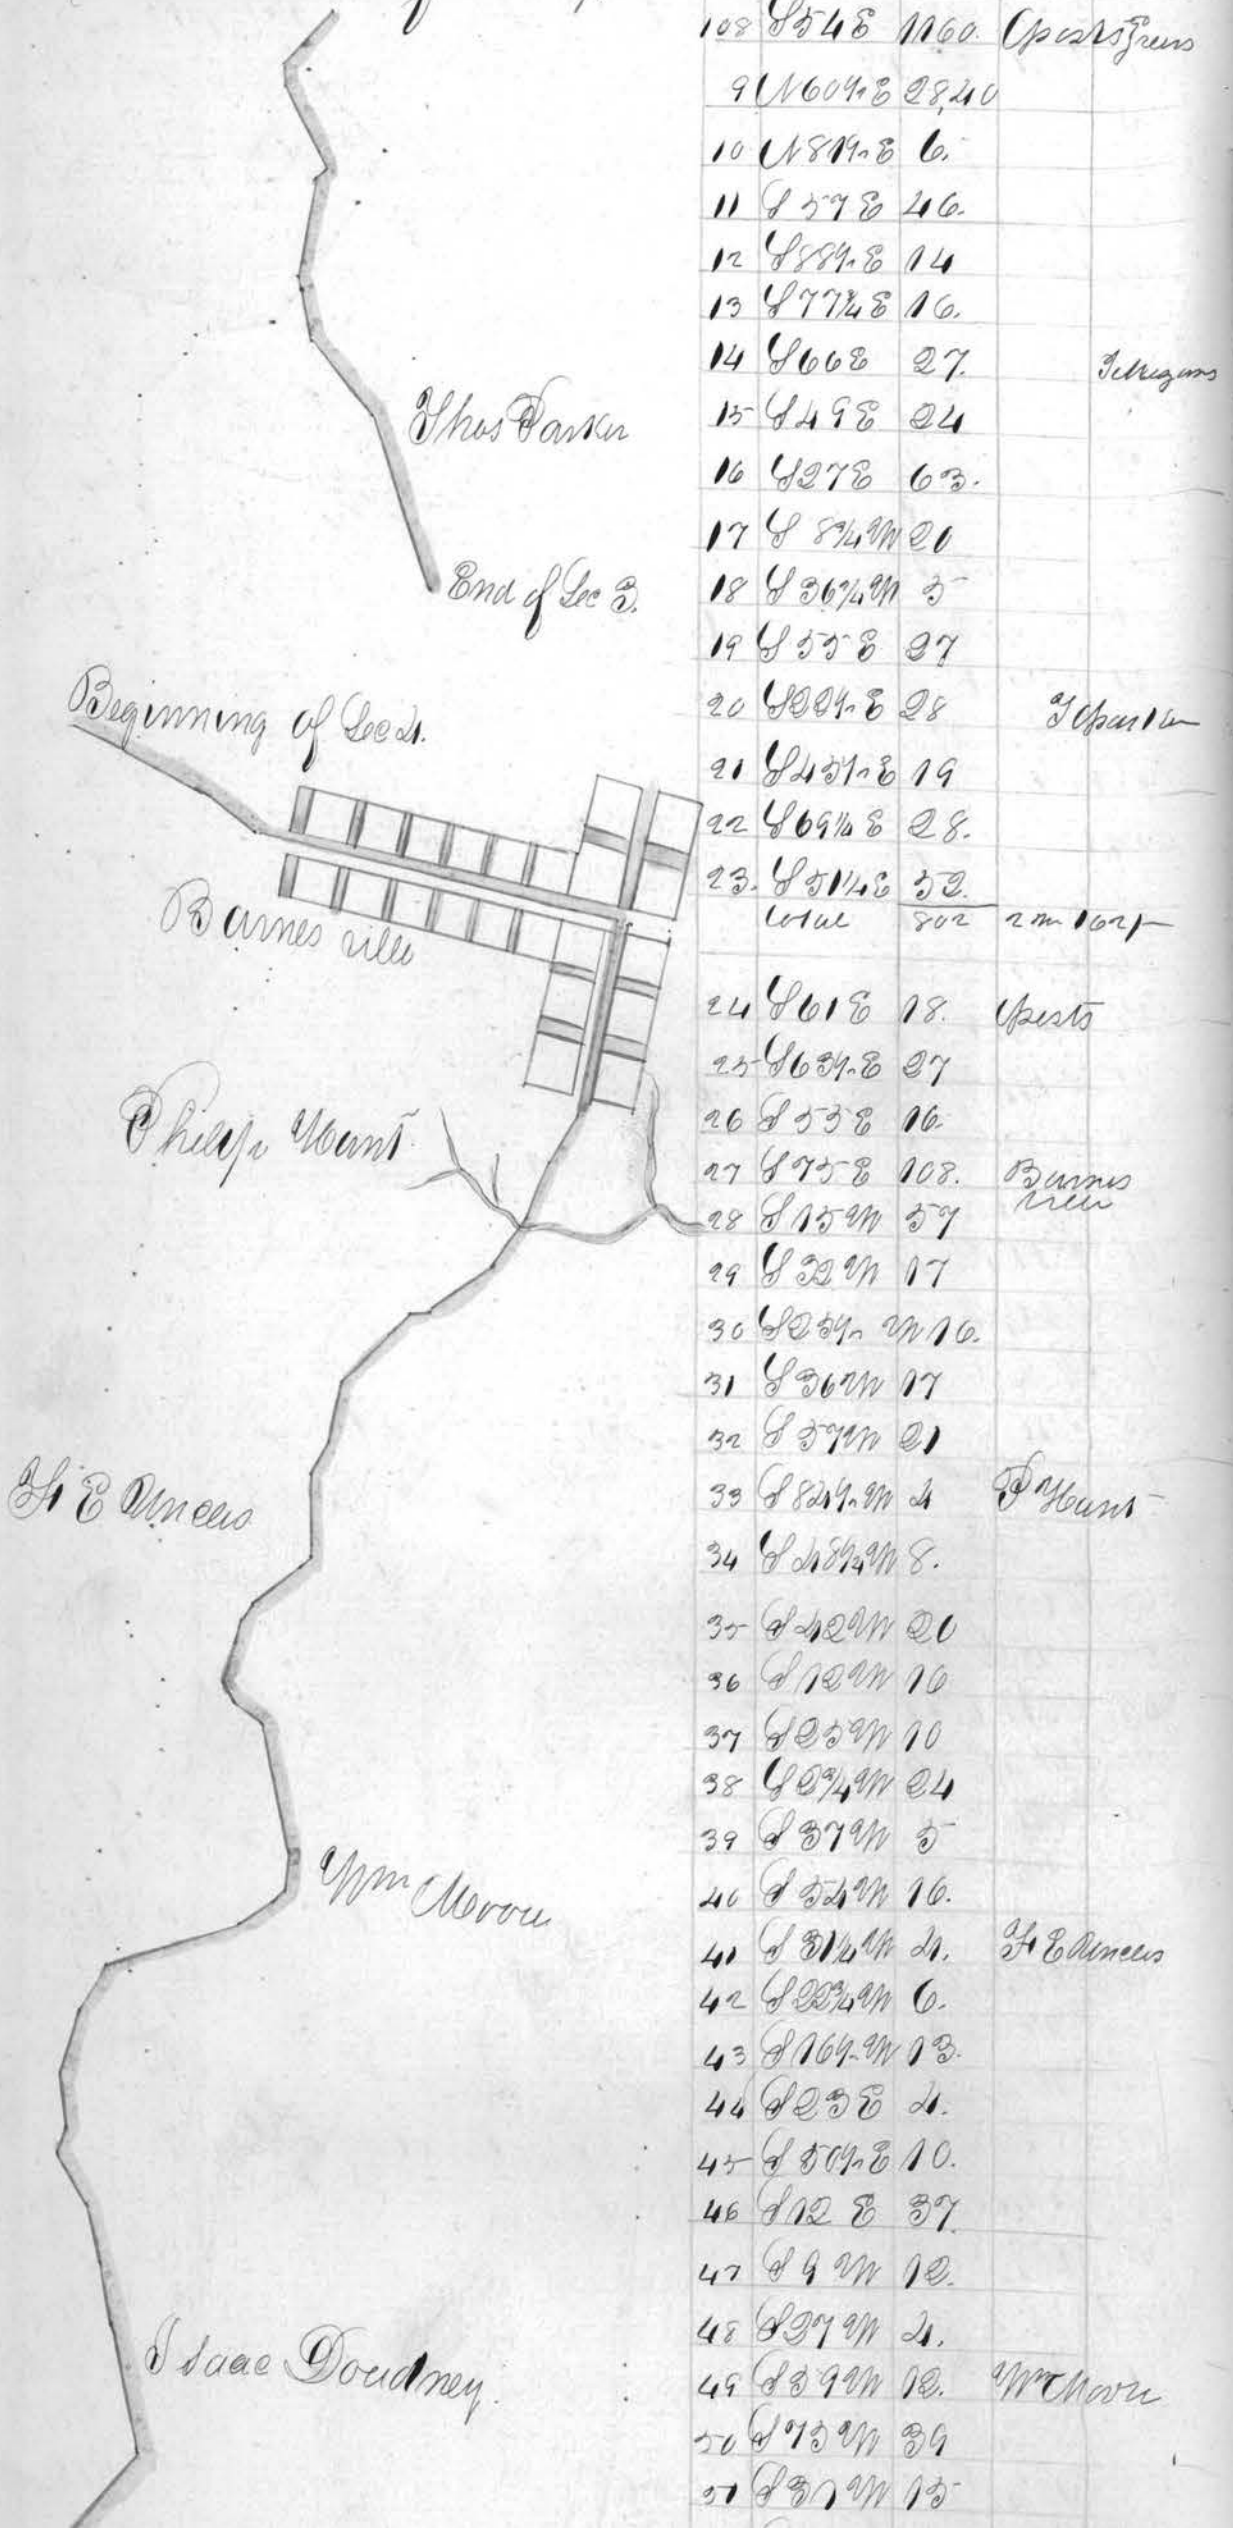 Thos Parker
End of Sec 3.
Beginning of Sec 4.
Barnes ville
Philip Hunt
Wm Moore
Isaac Doudney
108 S 54 E 1160. posts
9 N 60 1/2 E 28,40
10 N 81 1/2 E 6.
11 S 57 E 46.
12 S 88 1/2 E 14
13 S 77 3/4 E 16.
14 S 66 E 27.
15 S 49 E 24
16 S 27 E 63.
17 S 8 3/4 W 20
18 S 36 1/4 W 5
19 S 55 E 27
20 S 22 1/2 E 28 T Parker
21 S 45 1/2 E 19
22 S 69 1/4 E 28.
23. S 51 1/4 E 52.
total 802 2 m 162 p
24 S 61 E 18. posts
25 S 63 1/2 E 27
26 S 55 E 16.
27 S 75 E 108. Barnes
ville
28 S 15 W 57
29 S 32 W 17
30 S 25 1/2 W 16.
31 S 36 W 17
32 S 57 W 21
33 S 84 1/2 W 4 P Hunt
34 S 48 1/4 W 8.
35 S 42 W 20
36 S 12 W 16
37 S 25 W 10
38 S 2 3/4 W 24
39 S 37 W 5
40 S 54 W 16.
41 S 31 1/4 W 4. F E
42 S 22 3/4 W 6.
43 S 16 1/2 W 13.
44 S 23 E 4.
45 S 50 1/2 E 10.
46 S 12 E 37.
47 S 9 W 12.
48 S 27 W 4.
49 S 39 W 12. Wm Moore
50 S 75 W 39
51 S 31 W 15